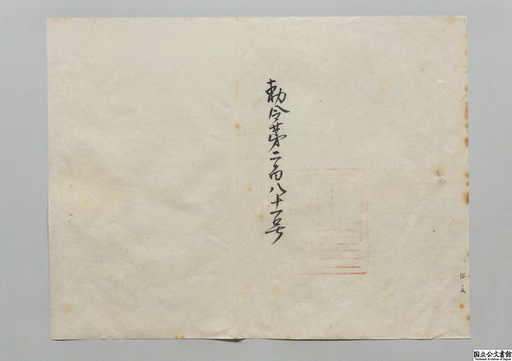 勅令第二百八十一号
国立公文書館
National Archives of Japan